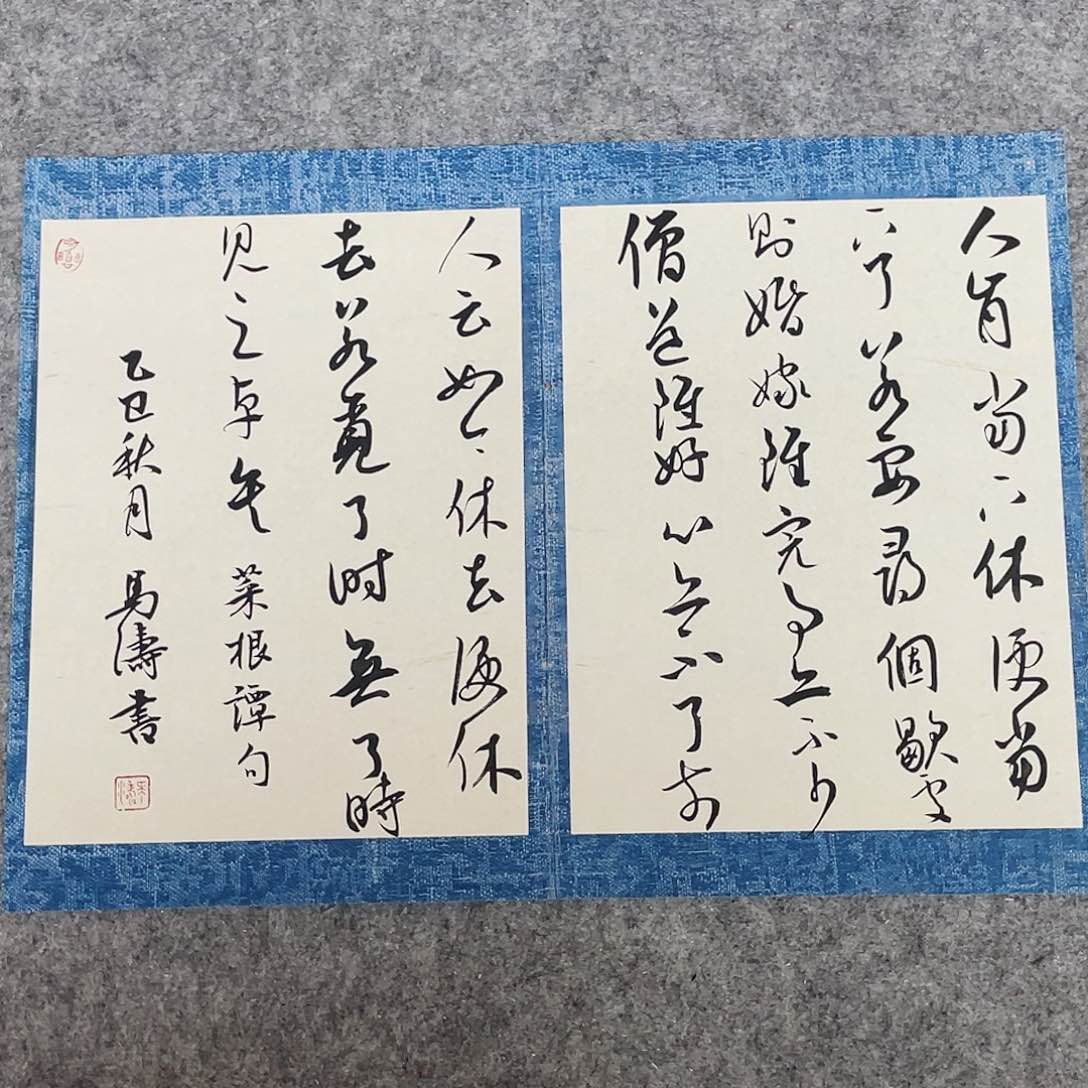 人肯當下休便當
下了若要尋個歇處
則婚嫁雖完事亦不少
僧道雖好心亦不了前
人云如今休去便休
去若覓了时無了時
見之卓矣 菜根譚句
乙巳秋月 馬濤書